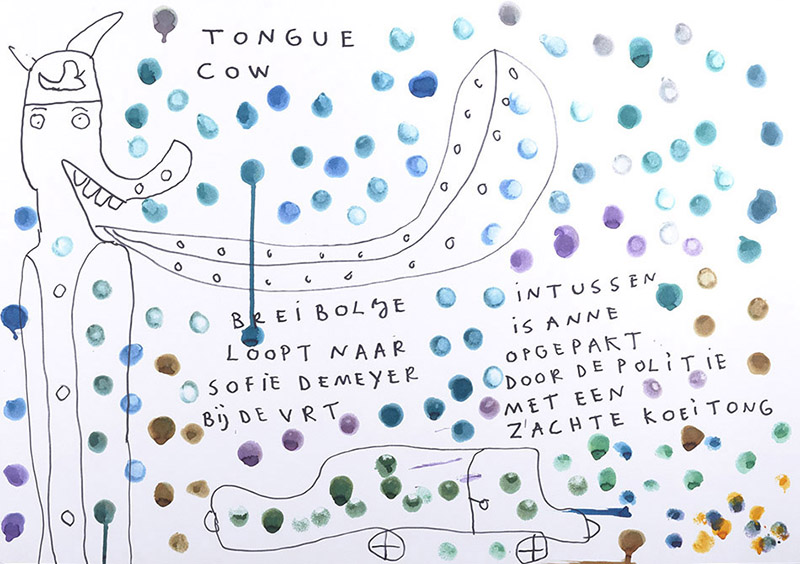 TONGUE
COW
BREIBOLTJE
LOOPT NAAR
SOFIE DEMEYER
Bij DE VRT
iNTUSSEN
iS ANNE
OPGEPAKT
DOOR DE POLiTiE
MET EEN
ZACHTE KOEiTONG